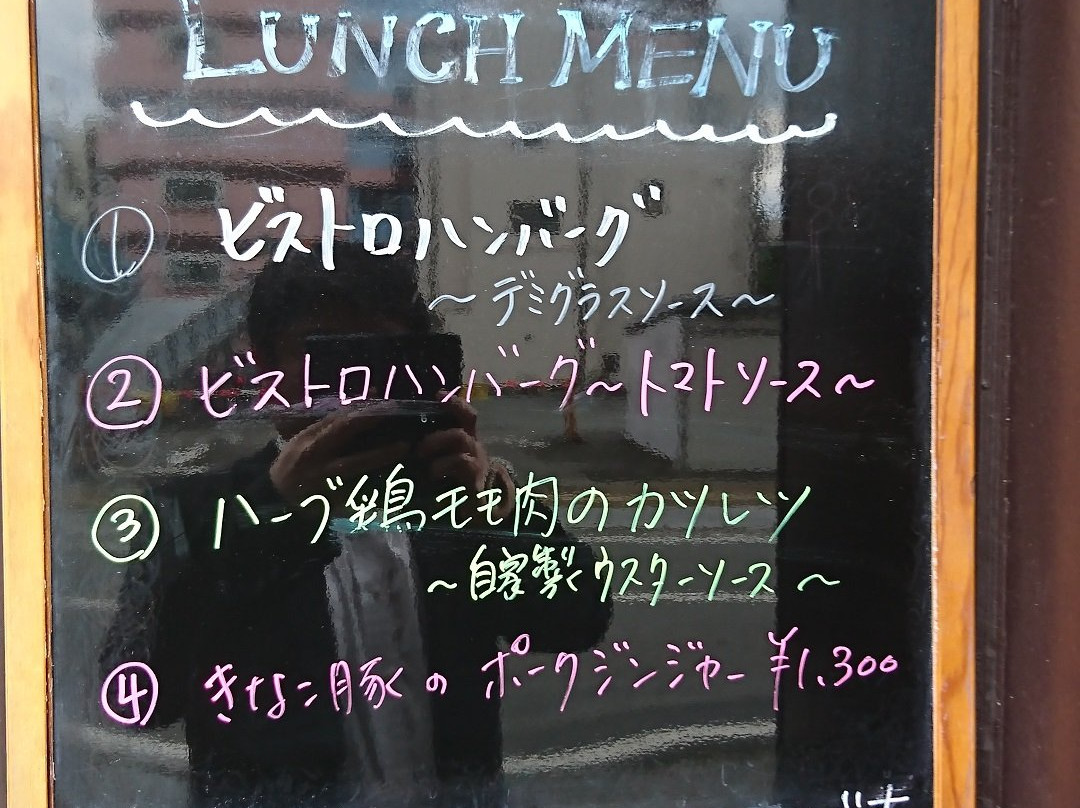 LUNCH MENU
① ビストロハンバーグ
～デミグラスソース～
② ビストロハンバーグ～トマトソース～
③ ハーブ鶏モモ肉のカツレツ
～自家製ウスターソース～
④ きなこ豚のポークジンジャー ¥1,300